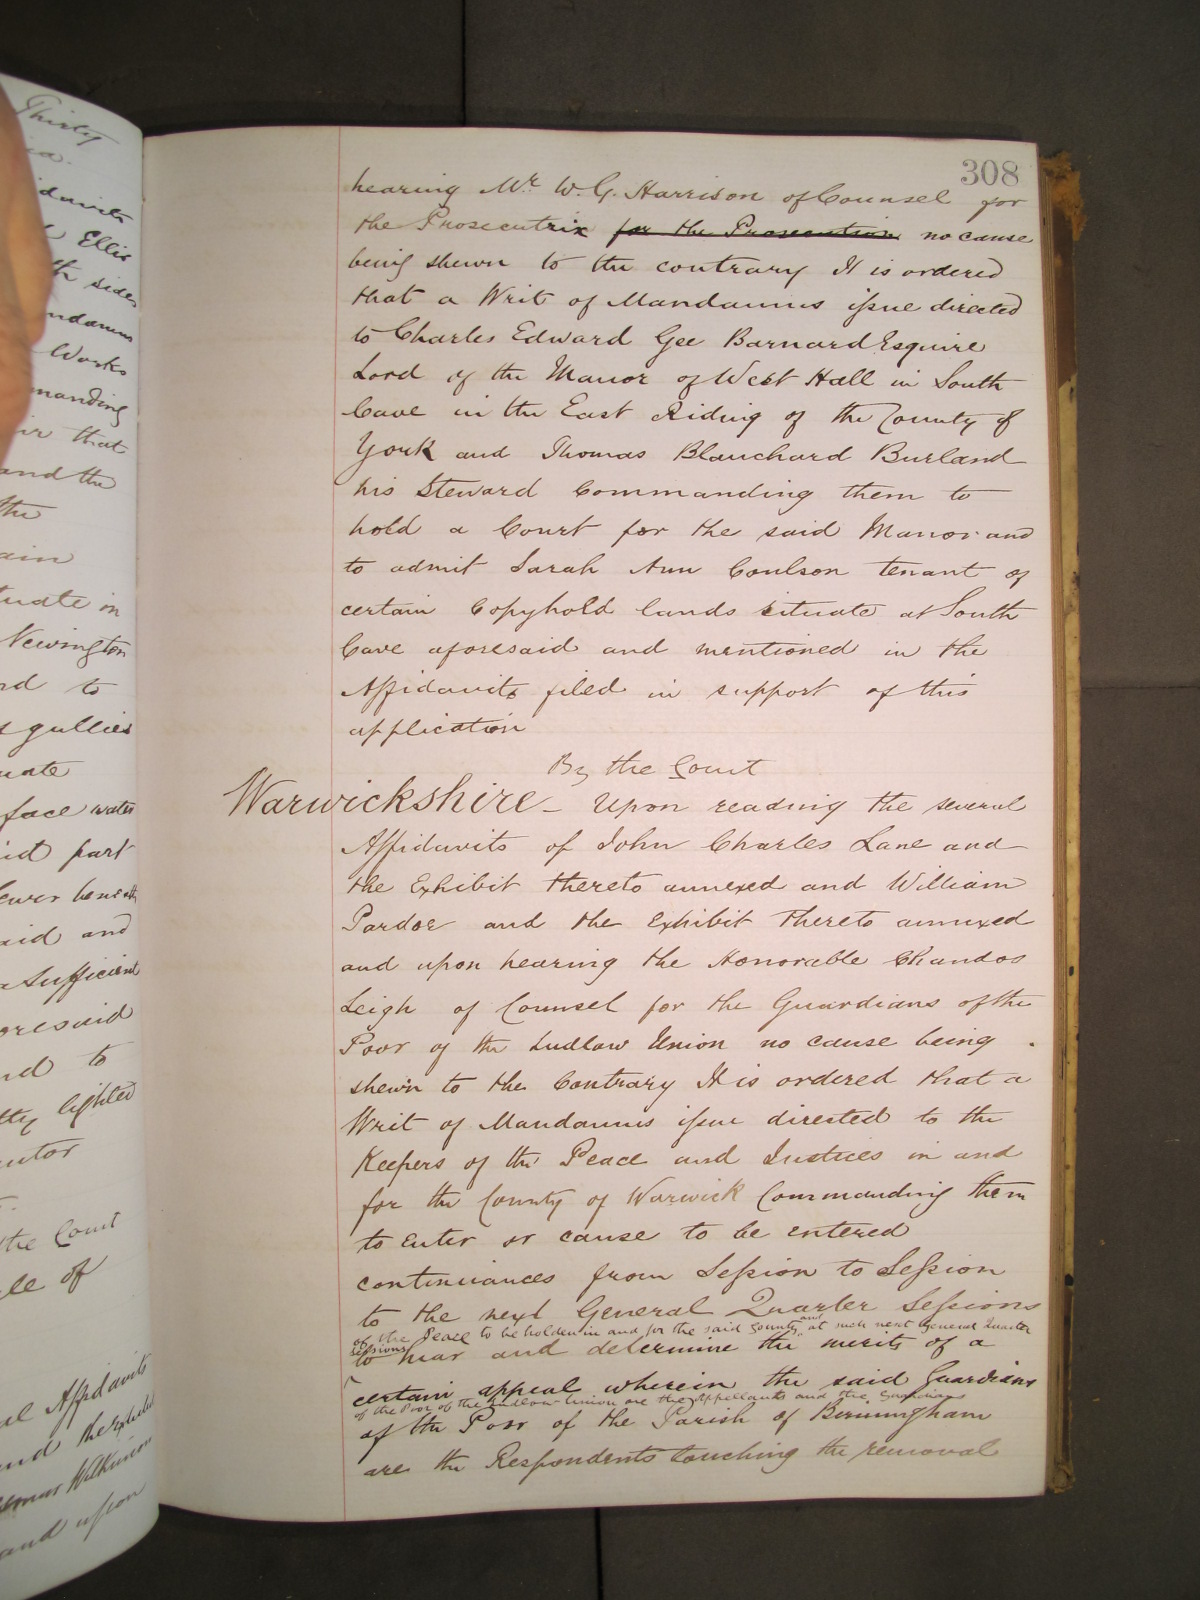 Thirty
Ellis
sides
Works
manding
that
and the
the
tuate in
Newington
to
gullies
face water
part
and
Sufficient
oresaid
to
lighted
the Court
of
Affidavits
and
Wilkinson
and upon
308
hearing Mr W. G. Harrison of Counsel for
the Prosecutrix for the Prosecution no cause
being shewn to the contrary It is ordered
that a Writ of Mandamus issue directed
to Charles Edward Gee Barnard Esquire
Lord of the Manor of West Hall in South
Cave in the East Riding of the County of
York and Thomas Blanchard Burland
his Steward Commanding them to
hold a Court for the said Manor and
to admit Sarah Ann Coulson tenant of
certain Copyhold lands situate at South
Cave aforesaid and mentioned in the
Affidavits filed in support of this
application
By the Court
Warwickshire – Upon reading the several
Affidavits of John Charles Lane and
the Exhibit thereto annexed and William
Pardoe and the Exhibit thereto annexed
and upon hearing the Honorable Chandos
Leigh of Counsel for the Guardians of the
Poor of the Ludlow Union no cause being
shewn to the Contrary It is ordered that a
Writ of Mandamus issue directed to the
Keepers of the Peace and Justices in and
for the County of Warwick Commanding them
to enter or cause to be entered
continuances from Session to Session
to the next General Quarter Sessions
of the Peace to be holden in and for the said County and at such next General Quarter
Sessions
to hear and determine the merits of a
certain appeal wherein the said Guardians
of the Poor of the Ludlow Union are the Appellants and the Guardians
of the Poor of the Parish of Birmingham
are the Respondents touching the removal